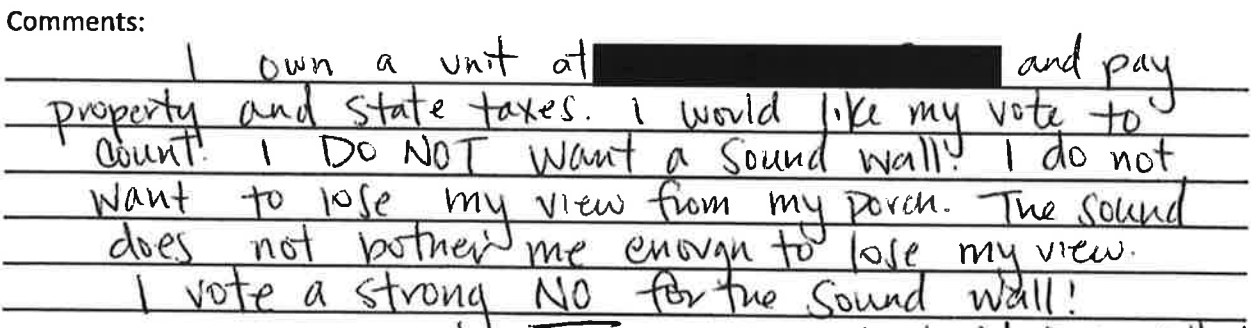 Comments:
I own a unit at and pay
property and state taxes. I would like my vote to
count! I DO NOT want a sound wall! I do not
want to lose my view from my porch. The sound
does not bother me enough to lose my view.
I vote a strong NO for the sound wall!